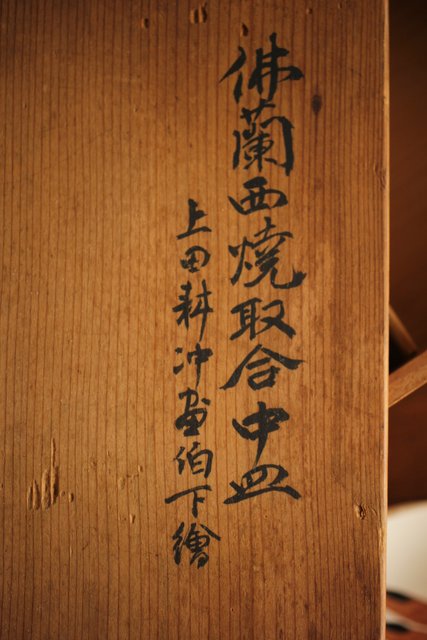 佛蘭西焼取合中皿
上田耕冲畫伯下繪